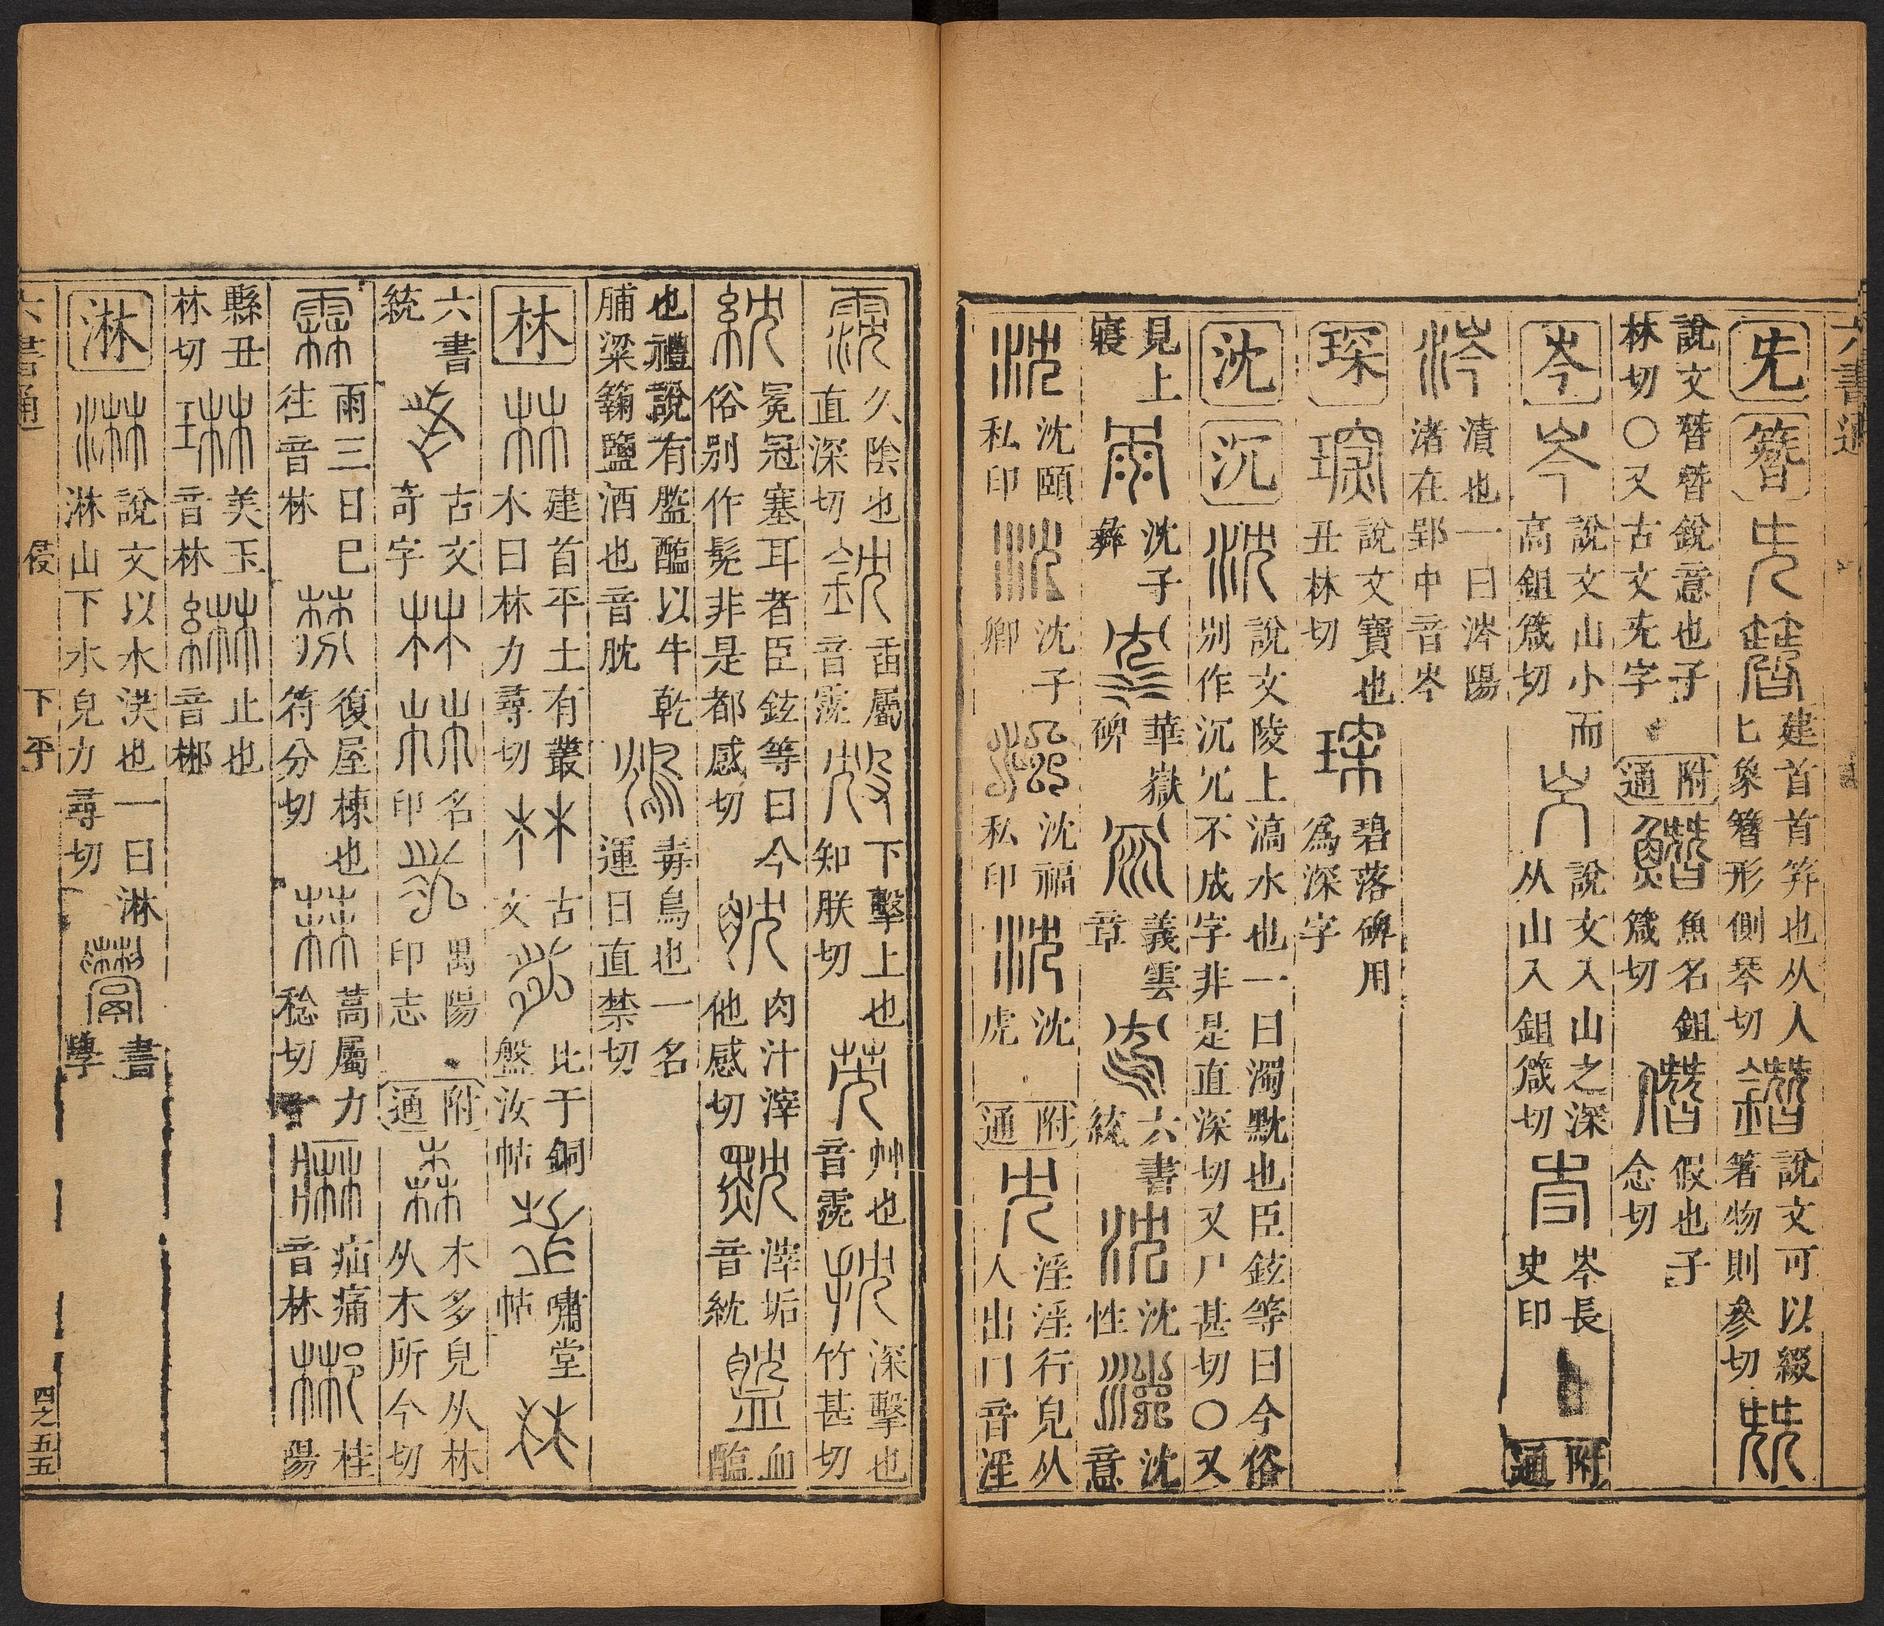 六書通
先 簪 建首首筓也从人匕象簪形側琴切 說文可以綴著物則參切
說文朁朁銳意也子林切〇又古文兂字 附通 魚名鉏箴切 假也子念切
岑 說文山小而高鉏箴切 說文入山之深从山入鉏箴切 岑長史印 附通
涔 漬也一曰涔陽渚在郢中音岑
琛 說文寶也丑林切 碧落碑用爲深字
沈 沉 說文陵上滈水也一曰濁黕也臣鉉等曰今俗別作沉冗不成字非是直深切又尸甚切〇又
見上寢 沈子彝 華嶽碑 義雲章 六書統 沈性 沈意
沈頤私印 沈子卿 沈福私印 沈虎 附通 淫淫行皃从人出冂音淫
久陰也直深切 臿屬音霃 下擊上也知朕切 艸也音霃 深擊也竹甚切
紞 冕冠塞耳者臣鉉等曰今俗別作髧非是都感切 肉汁滓他感切 滓垢音紞 血醢
也禮說有醢以牛乾脯粱䴷鹽酒也音肬 毒鳥也一名運日直禁切
林 建首平土有叢木曰林力尋切 古文 比于銅盤汝帖 嘯堂帖
六書統 古文奇字 名印 禺陽印志 附通 木多皃从林从木所今切
霖 雨三日已往音林 復屋棟也符分切 蒿屬力稔切 疝痛音林 桂陽
縣丑林切 美玉音林 止也音郴
淋 說文以水沃也一曰淋淋山下水皃力尋切 書學
六書通 侵 下平 四之五五